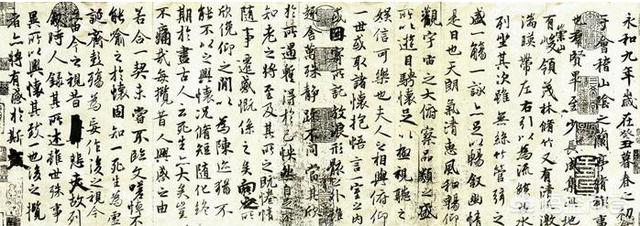 永和九年歲在癸丑暮春之初
于會稽山陰之蘭亭脩稧事
也群賢畢至少長咸集此地
有崇山峻領茂林脩竹又有清流激
湍暎帶左右引以為流觴曲水
列坐其次雖無絲竹管弦之
盛一觴一詠亦足以暢敘幽情
是日也天朗氣清惠風和暢仰
觀宇宙之大俯察品類之盛
所以遊目騁懷足以極視聽之
娛信可樂也夫人之相與俯仰
一世或取諸懷抱悟言一室之內
或因寄所託放浪形骸之外雖
趣舍萬殊靜躁不同當其欣
於所遇蹔得於己怏然自足不
知老之將至及其所之既惓情
隨事遷感慨係之矣向之所
欣俛仰之閒以為陳迹猶不
能不以之興懷況脩短隨化終
期於盡古人云死生亦大矣豈
不痛哉每攬昔人興感之由
若合一契未嘗不臨文嗟悼不
能喻之於懷固知一死生為虛
誕齊彭殤為妄作後之視今
亦由今之視昔悲夫故列
敘時人錄其所述雖世殊事
異所以興懷其致一也後之攬
者亦將有感於斯